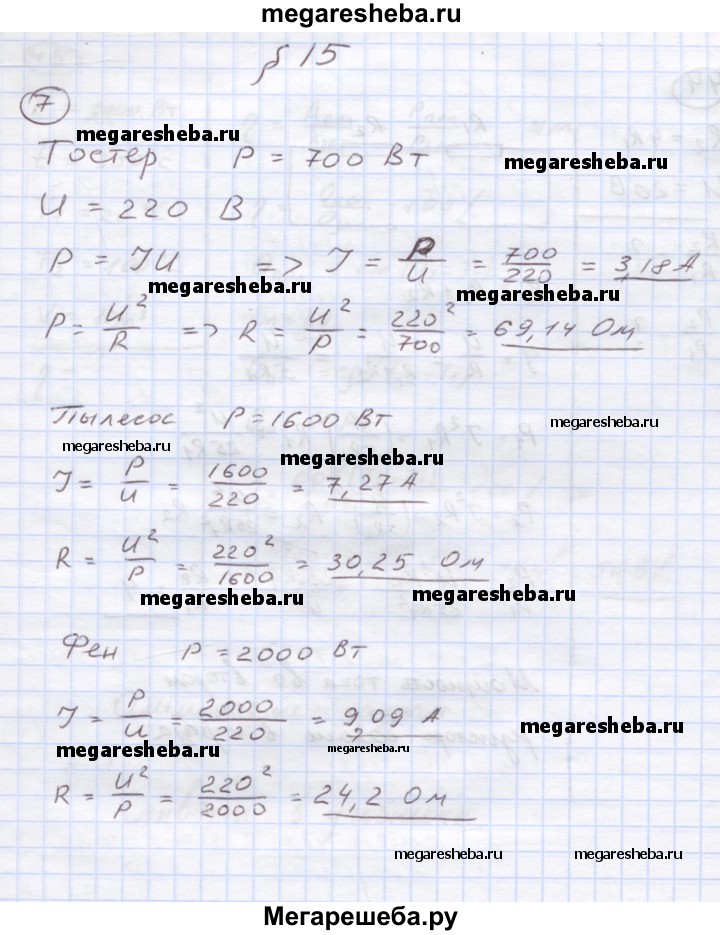 megaresheba.ru
§ 15
7
megaresheba.ru
Тостер P = 700 Вт
megaresheba.ru
U = 220 В
P = IU => I = P/U = 700/220 = 3,18 А
megaresheba.ru
megaresheba.ru
P = U²/R => R = U²/P = 220²/700 = 69,14 Ом
Пылесос P = 1600 Вт
megaresheba.ru
megaresheba.ru
megaresheba.ru
I = P/U = 1600/220 = 7,27 А
R = U²/P = 220²/1600 = 30,25 Ом
megaresheba.ru
megaresheba.ru
Фен P = 2000 Вт
I = P/U = 2000/220 = 9,09 А
megaresheba.ru
megaresheba.ru
megaresheba.ru
R = U²/P = 220²/2000 = 24,2 Ом
megaresheba.ru
megaresheba.ru
Мегарешеба.ру